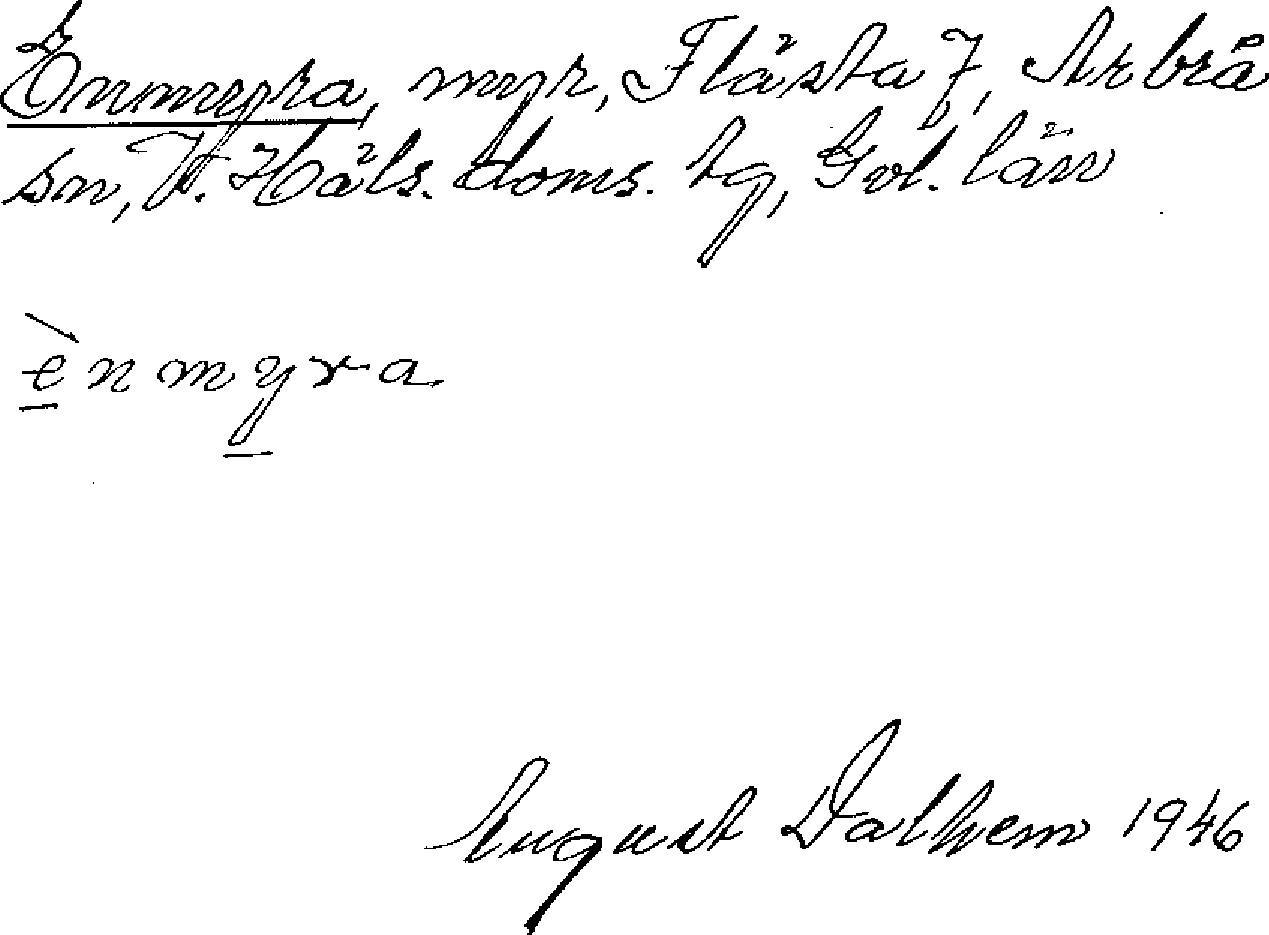 Enmyra, myr, Flästa 7, Arbrå
sn, V. Häls. doms. tg, Gvl. län
ènmyra
August Dalhem 1946